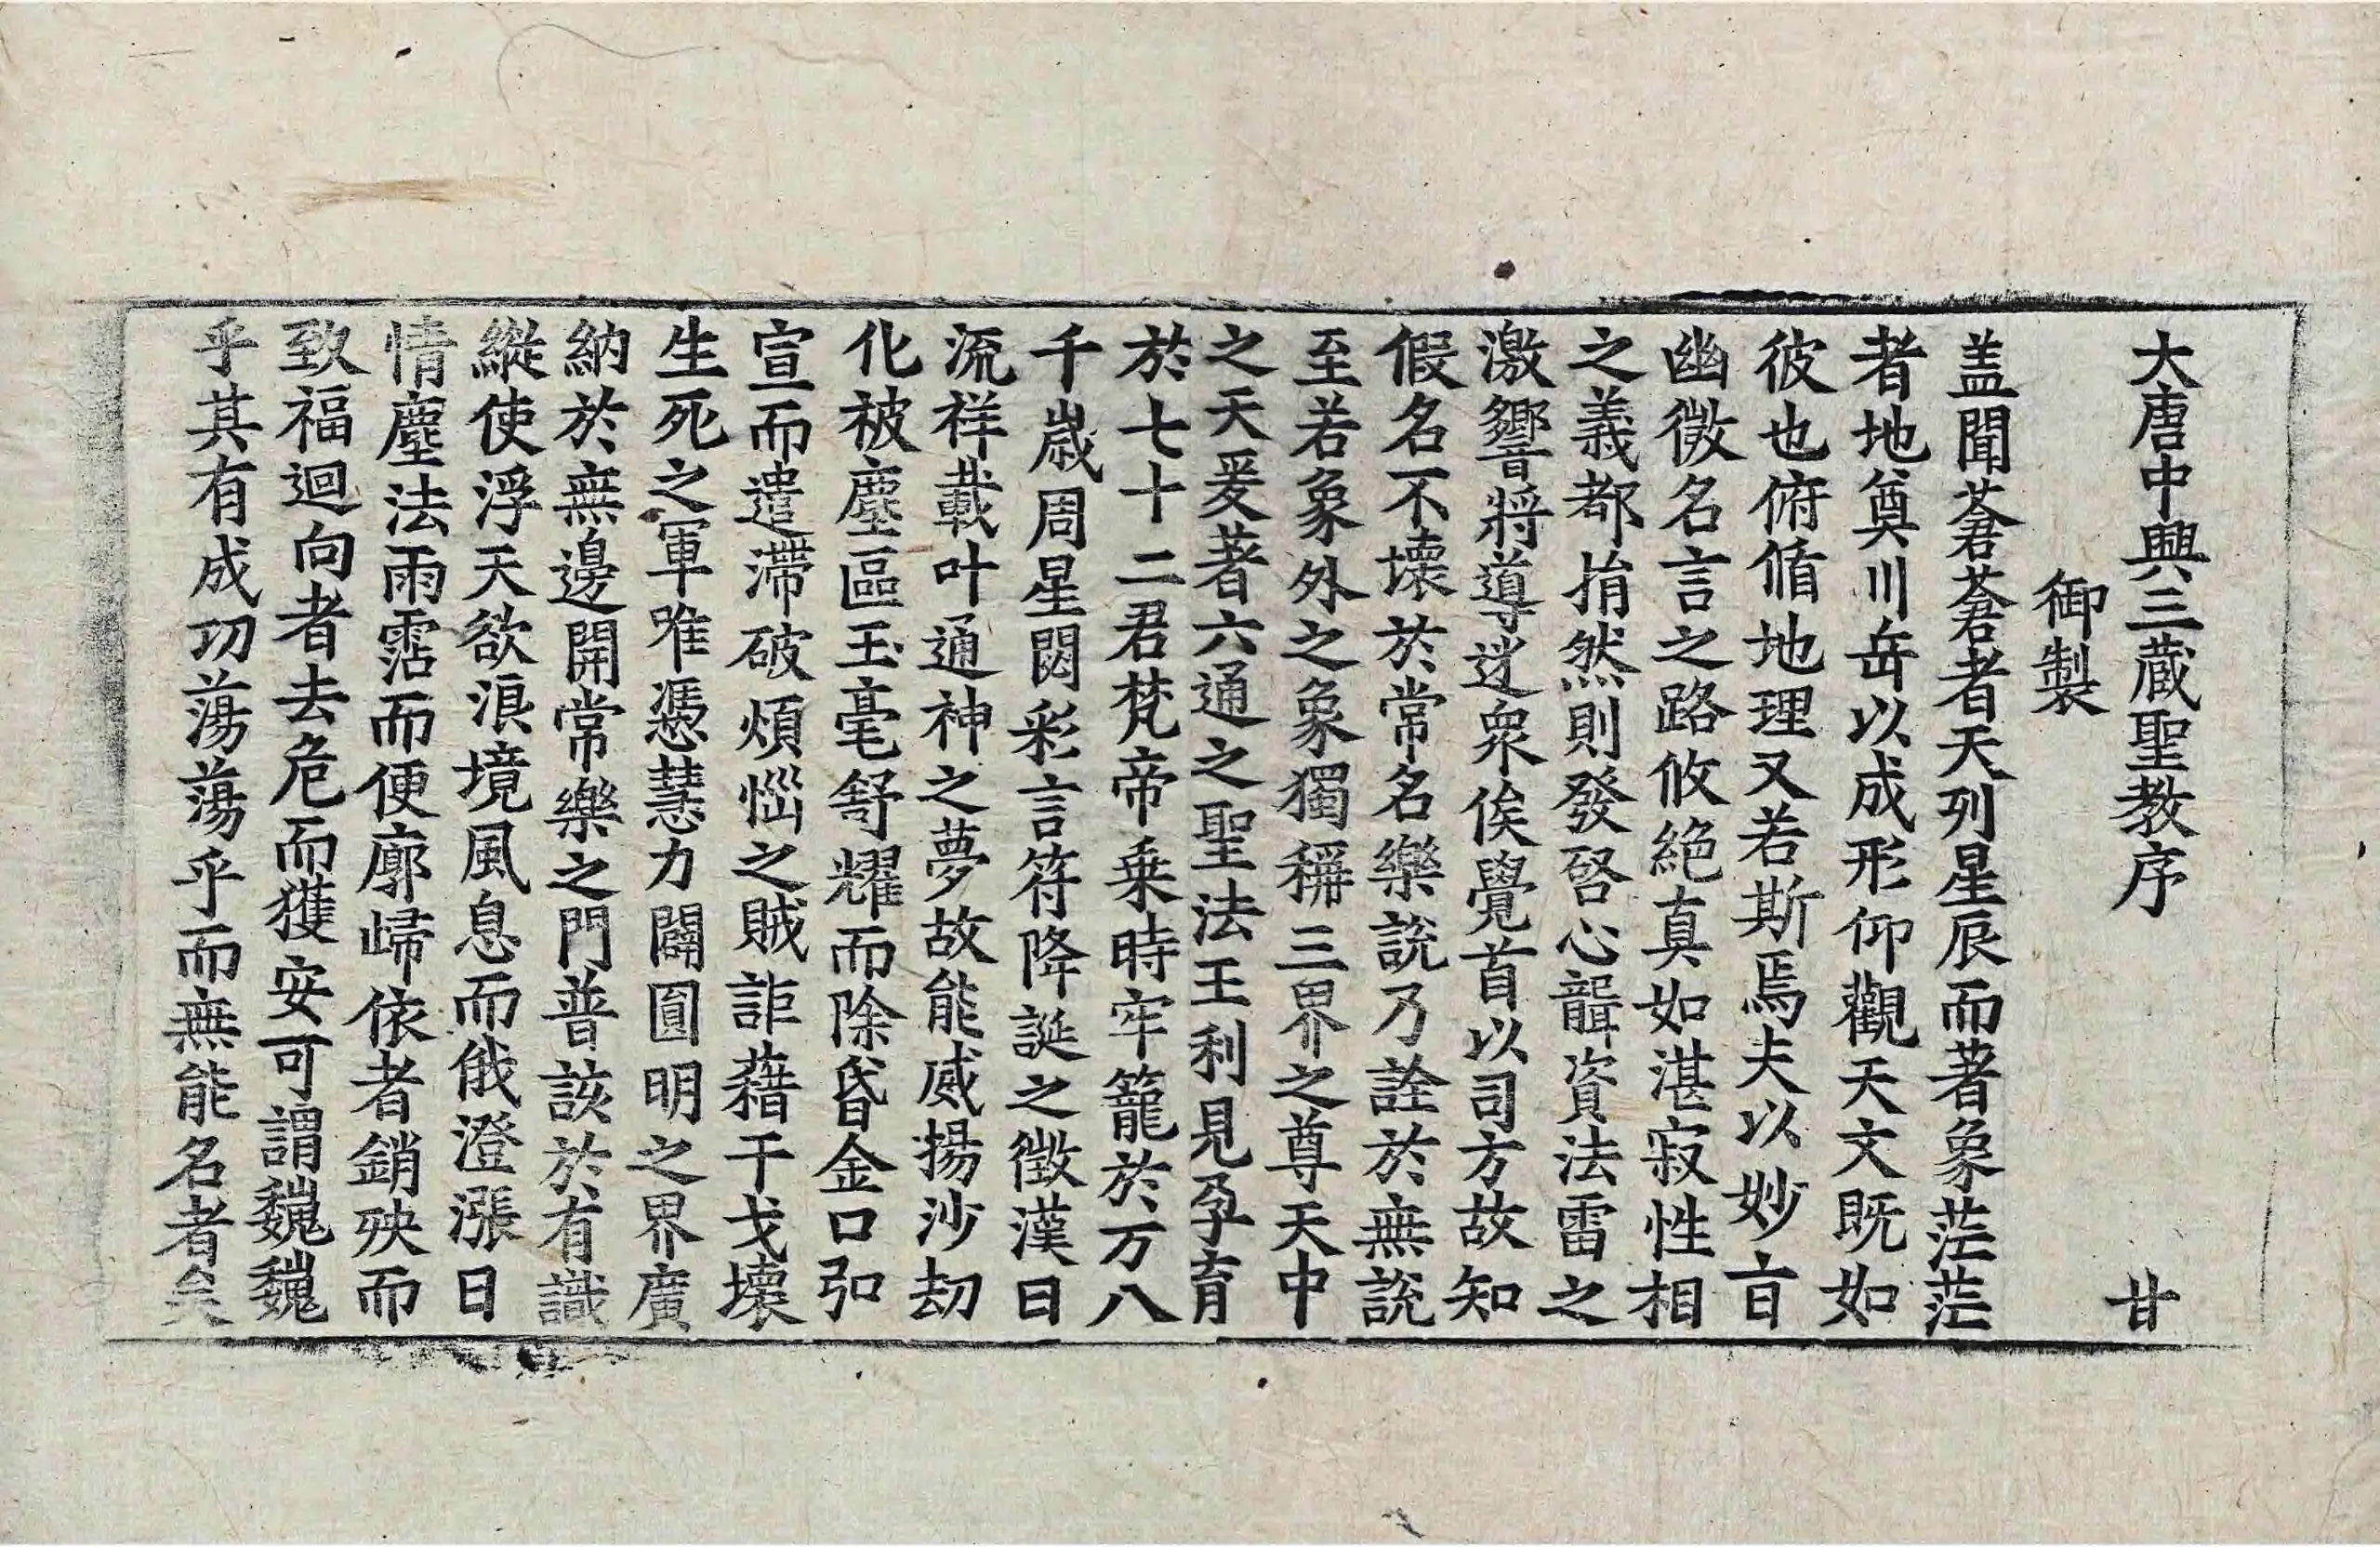 大唐中興三蔵聖教序 甘
御製
盖聞蒼蒼者天列星辰而著象茫茫
者地奠川岳以成形仰觀天文既如
彼也俯循地理又若斯焉夫以妙㫖
幽微名言之路攸絶真如湛寂性相
之義都捐然則發啓心聾資法雷之
激響將導迷衆俟覺首以司方故知
假名不壊於常名樂說乃詮於無說
至若象外之象獨稱三界之尊天中
之天爰著六通之聖法王利見孕育
於七十二君梵帝乗時牢籠於万八
千歳周星閟彩言符降誕之徵漢日
流祥載叶通神之夢故能威揚沙劫
化被塵區玉毫舒耀而除昏金口弘
宣而遣滯破煩惱之賊詎藉干戈壊
生死之軍唯憑慧力闢圓明之界廣
納於無邊開常樂之門普該於有識
縱使浮天欲浪境風息而俄澄漲日
情塵法雨霑而便廓歸依者銷殃而
致福迴向者去危而獲安可謂巍巍
乎其有成功蕩蕩乎而無能名者矣